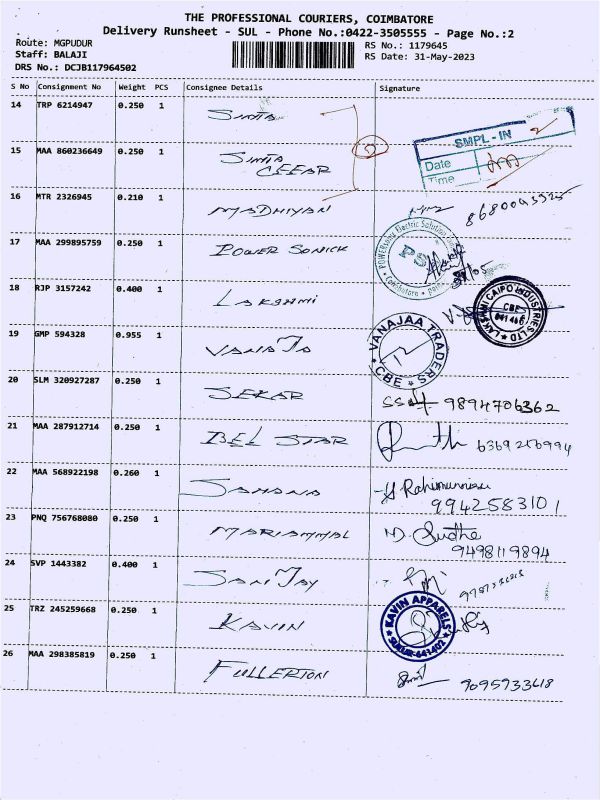 THE PROFESSIONAL COURIERS, COIMBATORE
Delivery Runsheet - SUL - Phone No.:0422-3505555 - Page No.:2
Route: MGPUDUR
Staff: BALAJI
DRS No.: DCJB117964502
RS No.: 1179645
RS Date: 31-May-2023
S No Consignment No Weight PCS Consignee Details Signature
14 TRP 6214947 0.250 1 SIMTA
SMPL - IN
Date
Time
15 MAA 860236649 0.250 1 SIMTA
CEEAR
16 MTR 2326945 0.210 1 MADHIYAN
17 MAA 299895759 0.250 1 POWER SONICK
POWERsonic Electric Solution
Coimbatore
18 RJP 3157242 0.400 1 LAKSHMI
LAKSHMI CAIPO INDUSTRIES LTD
CBE
641 406
19 GMP 594328 0.955 1 VANAJA
VANAJAA TRADERS
CBE
20 SLM 320927287 0.250 1 SEKAR 9894706362
21 MAA 287912714 0.250 1 BEL STAR 6369256994
22 MAA 568922198 0.260 1 SAHANA Rahimunnisa
9942583101
23 PNQ 756768080 0.250 1 MARIAMMAL M. Sudha
9498119894
24 SVP 1443382 0.400 1 SANJAY
25 TRZ 245259668 0.250 1 KAVIN
KAVIN APPARELS
SULUR-641402
26 MAA 298385819 0.250 1 FULLERTON 9095933618